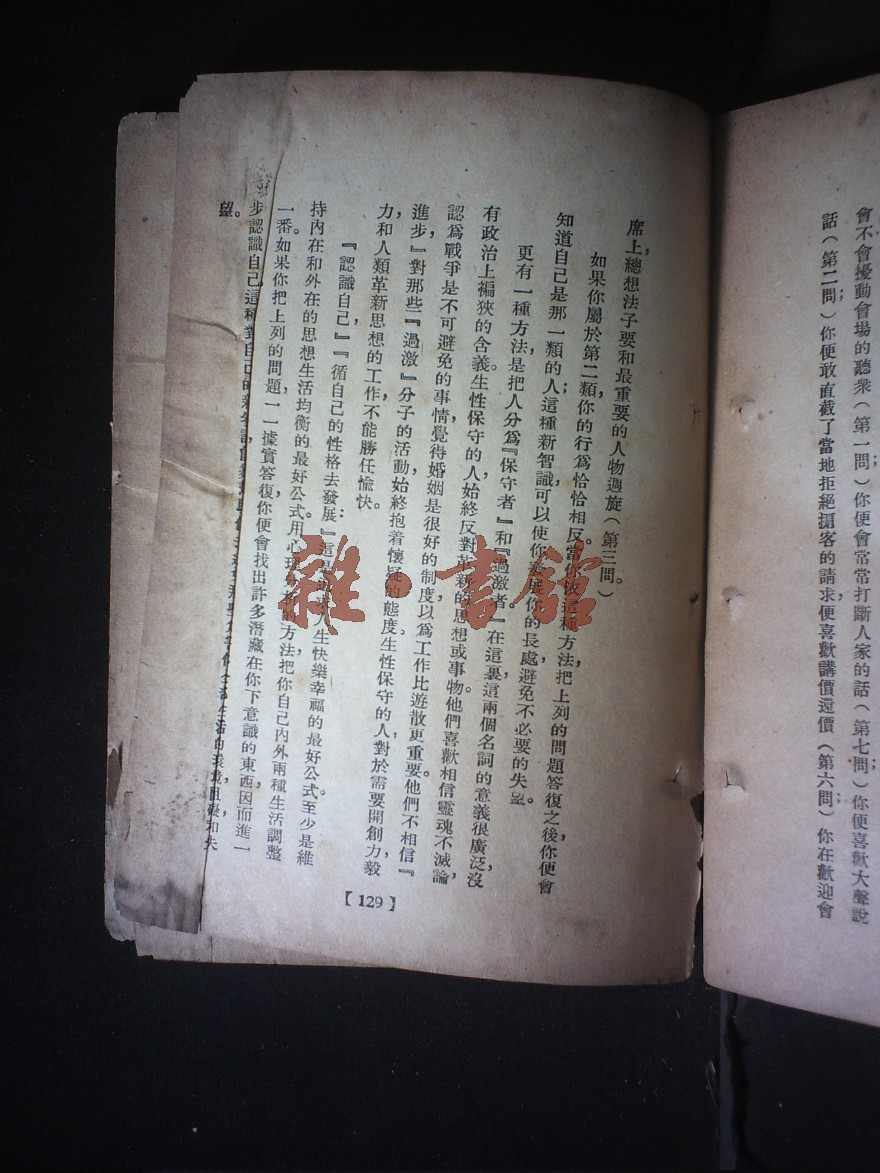 會不會擾動會場的聽衆(第一問);你便會常常打斷人家的話(第七問);你便喜歡大聲說
話(第二問);你便敢直截了當地拒絕掮客的請求,便喜歡講價還價(第六問);你在歡迎會
席上,總想法子要和最重要的人物週旋(第三問。)
如果你屬於第二類,你的行爲恰恰相反。當你依這種方法,把上列的問題答復之後,你便會
知道自己是那一類的人;這種新智識可以使你發展你的長處,避免不必要的失望。
更有一種方法,是把人分爲『保守者』和『過激者。』在這裏,這兩個名詞的意義很廣泛,沒
有政治上褊狹的含義。生性保守的人,始終反對革新的思想或事物。他們喜歡相信靈魂不滅論,
認爲戰爭是不可避免的事情,覺得婚姻是很好的制度,以爲工作比遊散更重要。他們不相信『
進步,』對那些『過激』分子的活動,始終抱着懷疑的態度。生性保守的人,對於需要開創力,毅
力,和人類革新思想的工作,不能勝任愉快。
『認識自己,』『循自己的性格去發展:』這是 人生快樂幸福的最好公式,至少是維
持內在和外在的思想生活均衡的最好公式。用心理分析的方法,把你自己內外兩種生活調整
一番。如果你把上列的問題,一一據實答復,你便會找出許多潛藏在你下意識的東西,因而進一
步認識自己。這種對自己的新 失
望。
【129】
雜·書館